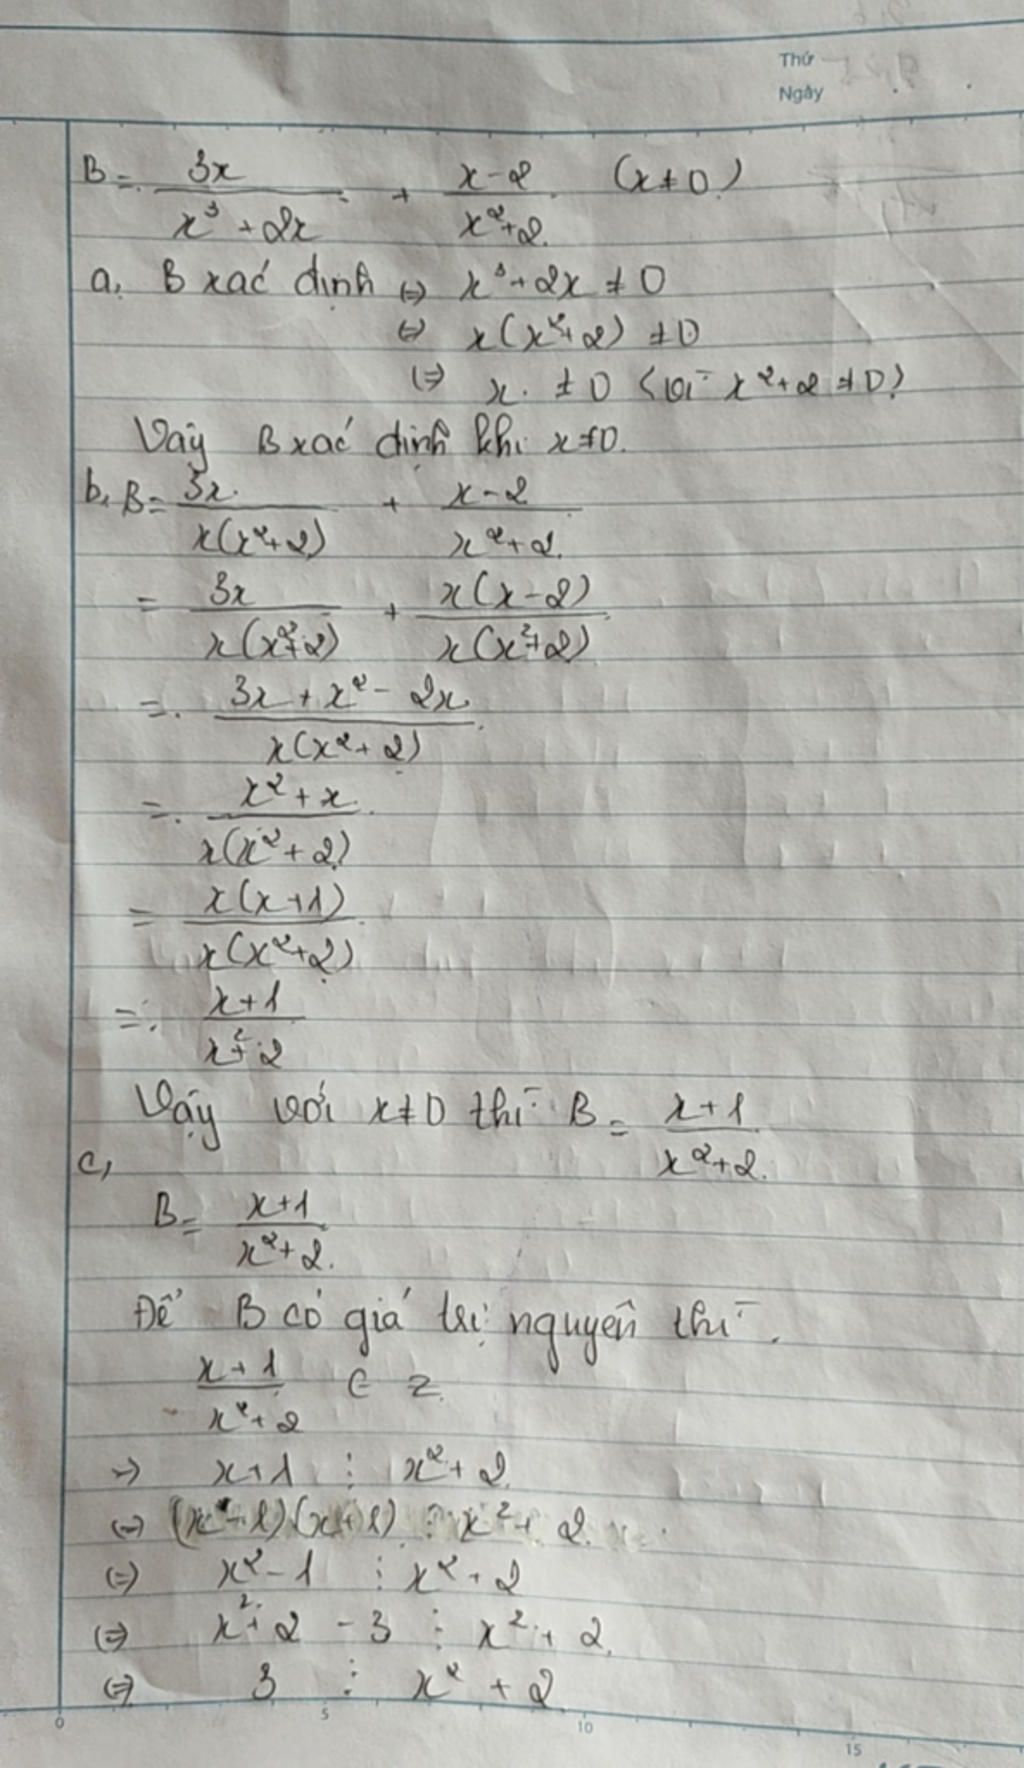 Thứ
Ngày
B = 3x/(x³ + 2x) + (x-2)/(x²+2) (x≠0)
a, B xác định ⇔ x³+2x ≠ 0
⇔ x(x²+2) ≠ 0
⇔ x ≠ 0 (vì x²+2 ≠ 0)
Vậy B xác định khi x≠0.
b, B = 3x/(x(x²+2)) + (x-2)/(x²+2)
= 3x/(x(x²+2)) + x(x-2)/(x(x²+2))
= (3x + x² - 2x)/(x(x²+2))
= (x² + x)/(x(x²+2))
= x(x+1)/(x(x²+2))
= (x+1)/(x²+2)
Vậy với x≠0 thì B = (x+1)/(x²+2)
c,
B = (x+1)/(x²+2)
Để B có giá trị nguyên thì
(x+1)/(x²+2) ∈ Z
⇒ x+1 ⋮ x²+2
⇔ x²-1 ⋮ x²+2
⇔ x²+2 - 3 ⋮ x²+2
⇔ 3 ⋮ x²+2
0 5 10 15